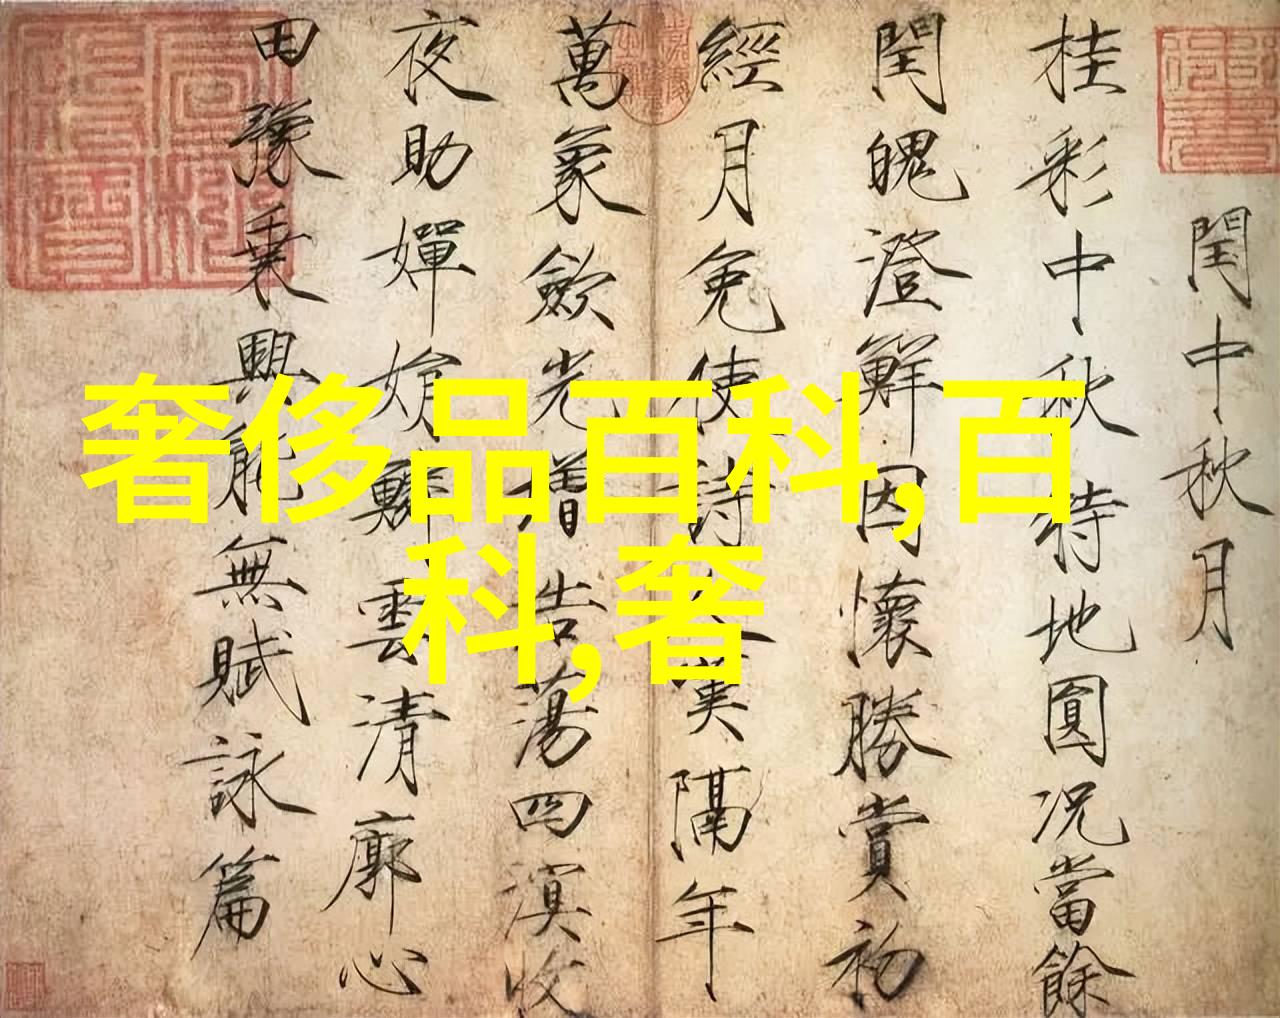 閏中秋月
桂彩中秋特地圓况當餘
閏魄澄鮮因懷勝賞初
經月免使詩人嘆隔年
萬象斂光增浩蕩四溟收
夜助嬋娟鱗雲清廓心
田豫乗興能無賦詠篇
奢侈品百科,百
科,奢